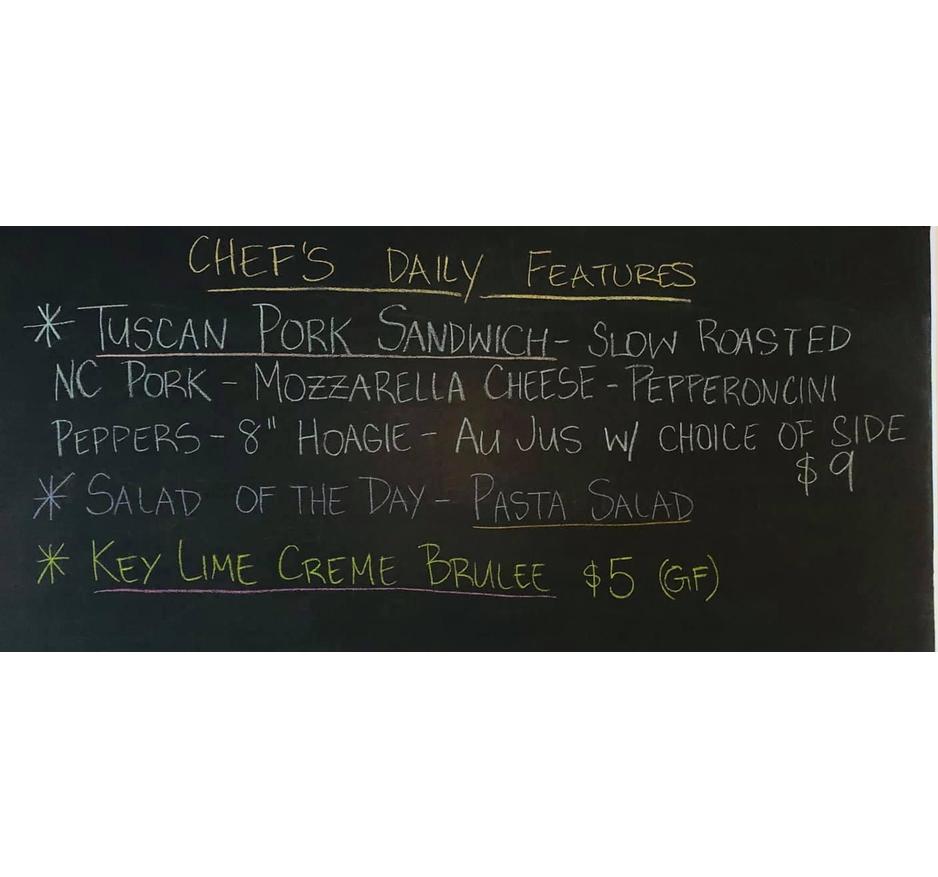 CHEF'S DAILY FEATURES
* TUSCAN PORK SANDWICH - SLOW ROASTED
NC PORK - MOZZARELLA CHEESE - PEPPERONCINI
PEPPERS - 8" HOAGIE - AU JUS W/ CHOICE OF SIDE
$9
* SALAD OF THE DAY - PASTA SALAD
* KEY LIME CREME BRULEE $5 (GF)